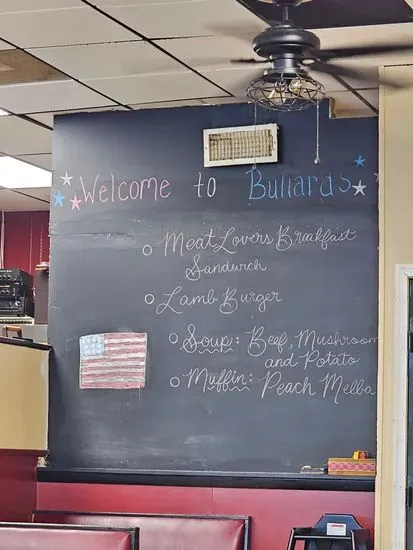 Welcome to Bullards
Meat Lovers Breakfast
Sandwich
Lamb Burger
Soup: Beef, Mushroom
and Potato
Muffin: Peach Melba